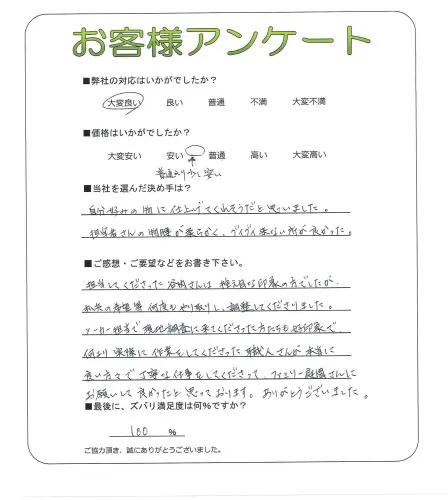 お客様アンケート
■弊社の対応はいかがでしたか?
大変良い 良い 普通 不満 大変不満
■価格はいかがでしたか?
大変安い 安い 普通 高い 大変高い
普通より少し安い
■当社を選んだ決め手は?
自分好みの物に仕上げてくれそうだと思いました。
担当者さんの物腰が柔らかく、グイグイ来ない所が良かった。
■ご感想・ご要望などをお書き下さい。
担当してくださった谷嶋さんは控え目な印象の方でしたが、
私共の希望等何度もやり取りし、調整してくださりました。
メーカー担当で現地調査に来てくださった方たちも好印象で、
何より実際に作業をしてくださった職人さんが本当に
良い方々で丁寧な仕事をしてくださって、フェリー庭園さんに
お願いして良かったと思っております。ありがとうございました。
■最後に、ズバリ満足度は何%ですか?
100 %
ご協力頂き、誠にありがとうございました。